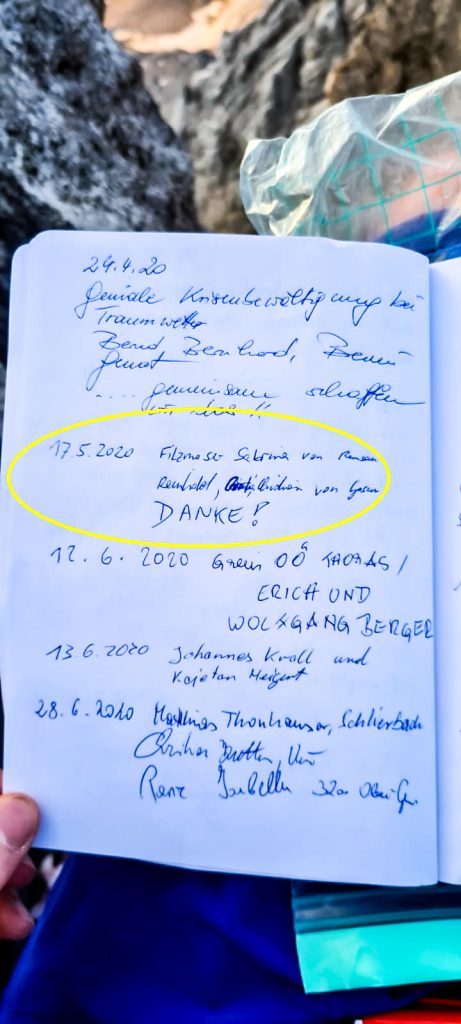 24.4.20
Geniale Krisenbewältigung bei
Traumwetter
Bernd Bernhard,
Gernot
.... gemeinsam schaffen
wir das!!
17.5.2020 Filzmoser Sabrina von
Reinhold, von
DANKE!
12.6.2020 Grein OÖ THOMAS /
ERICH UND
WOLFGANG BERGER
13.6.2020 Johannes Kroll und
Kajetan
28.6.2020 Matthias Thonhauser, Schlierbach
Rene Isabella